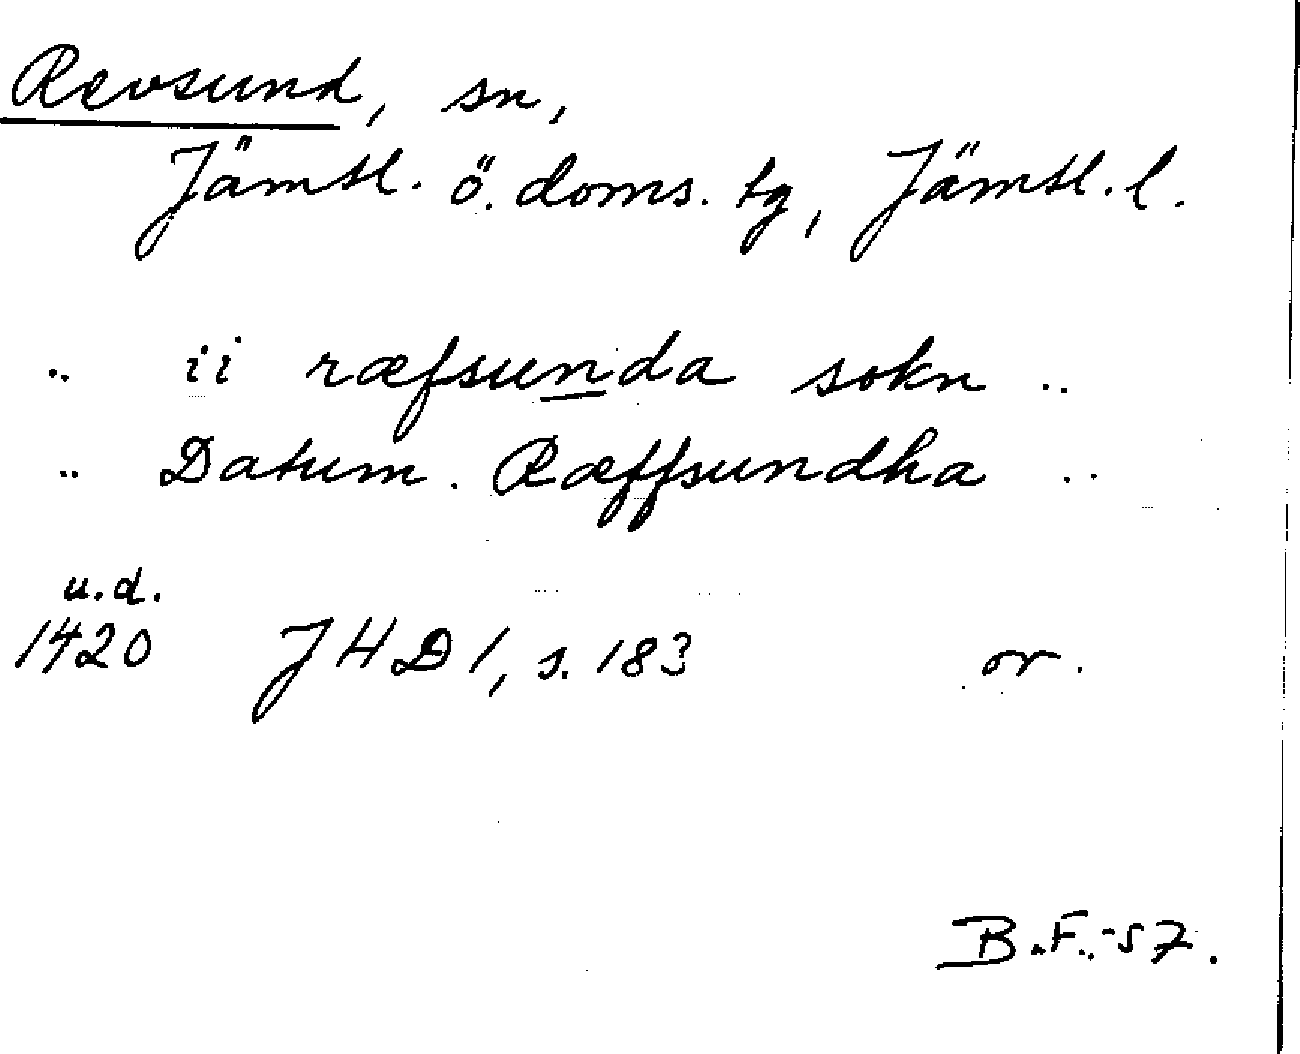 Revsund, sn,
Jämtl. ö. doms. tg, Jämtl. l.
.. ii ræfsunda sokn ..
.. Datum. Ræffsundha ..
u.d.
1420 JHD 1, s. 183 or.
B.F.-57.